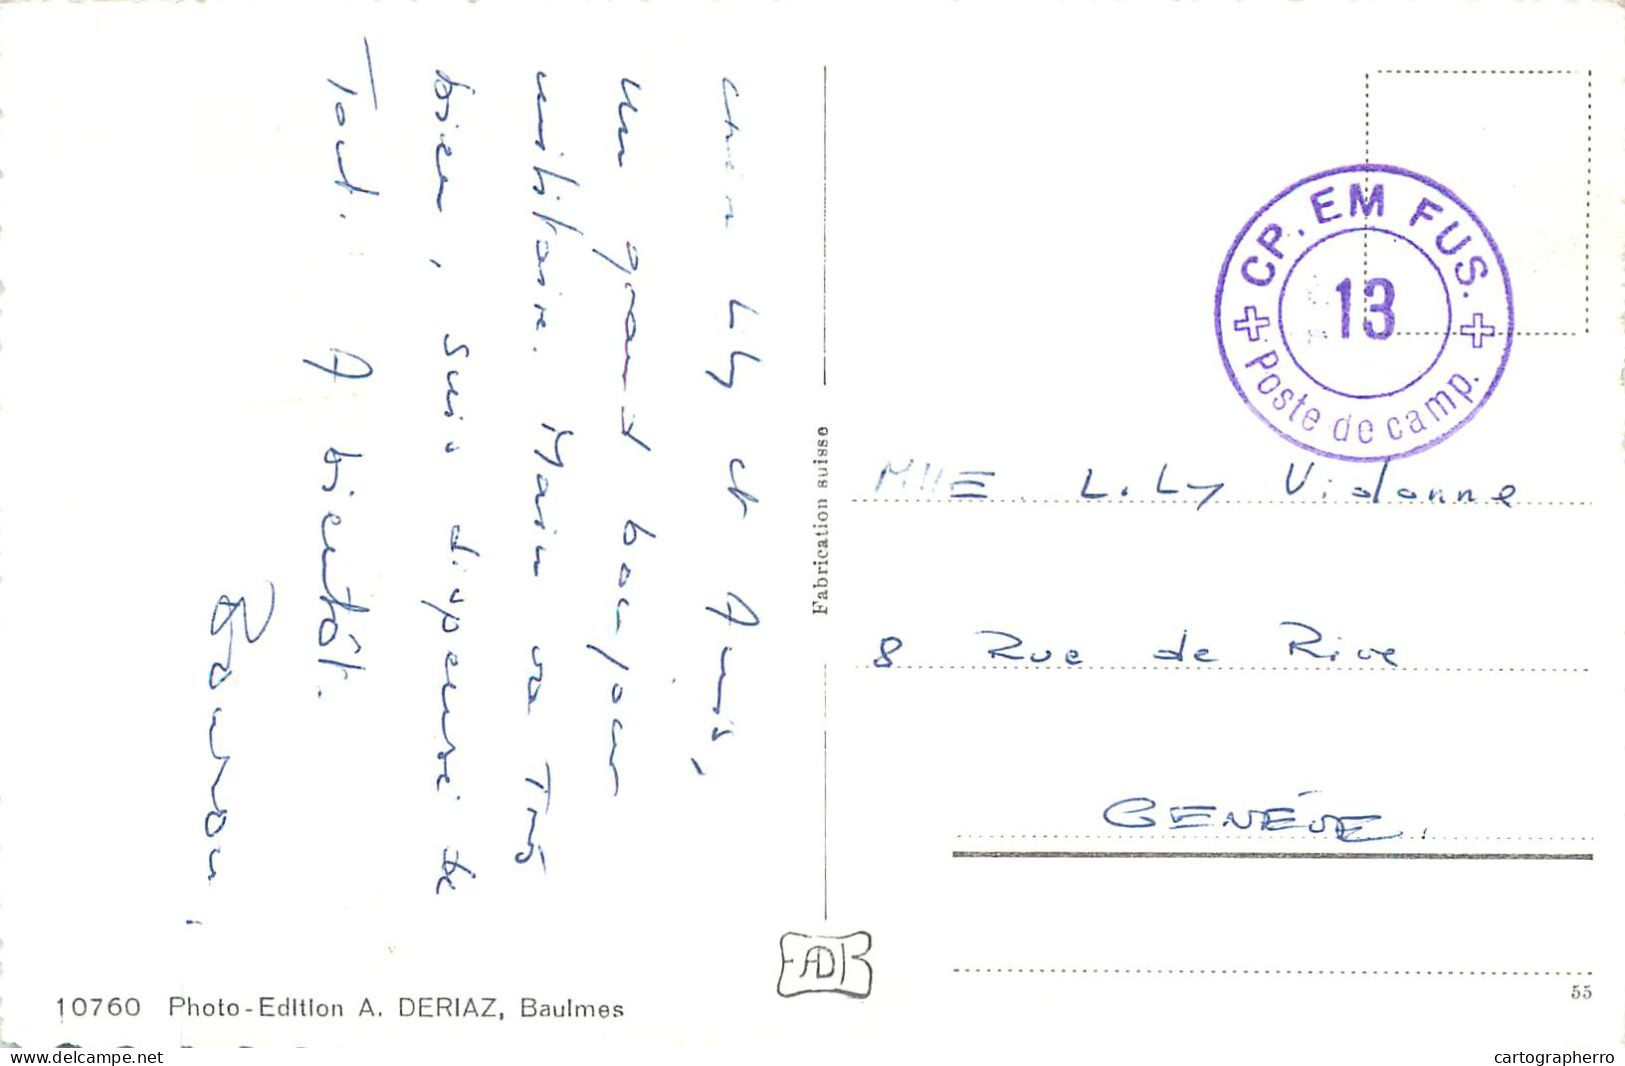 Chère Lily et Amis,
Un grand bonjour
militaire. Main va Très
bien, suis dispensé de
Tout. A bientôt.
CP. EM FUS.
13
Poste de camp.
Fabrication suisse
MLLE. Lily Vidonne
8 Rue de Rive
GENÈVE.
ADB
55
10760 Photo-Edition A. DERIAZ, Baulmes
delcampe.net
cartographerro